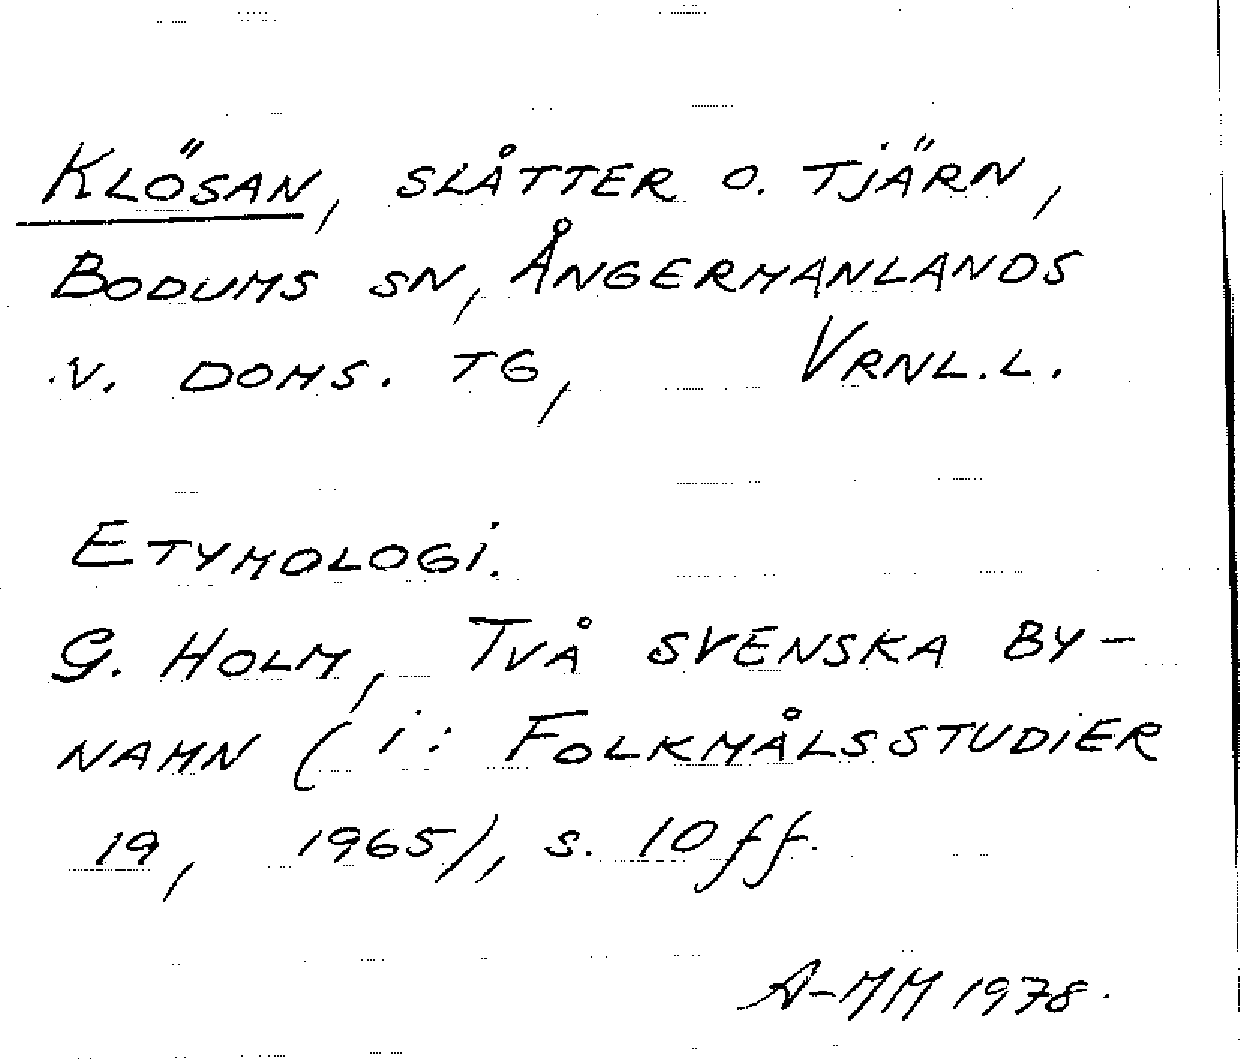 KLÖSAN, SLÅTTER O. TJÄRN,
BODUMS SN, ÅNGERMANLANDS
V. DOMS. TG, VRNL.L.
ETYMOLOGI.
G. HOLM, TVÅ SVENSKA BY-
NAMN (i: FOLKMÅLSSTUDIER
19, 1965), S. 10 ff.
A-MM 1978.